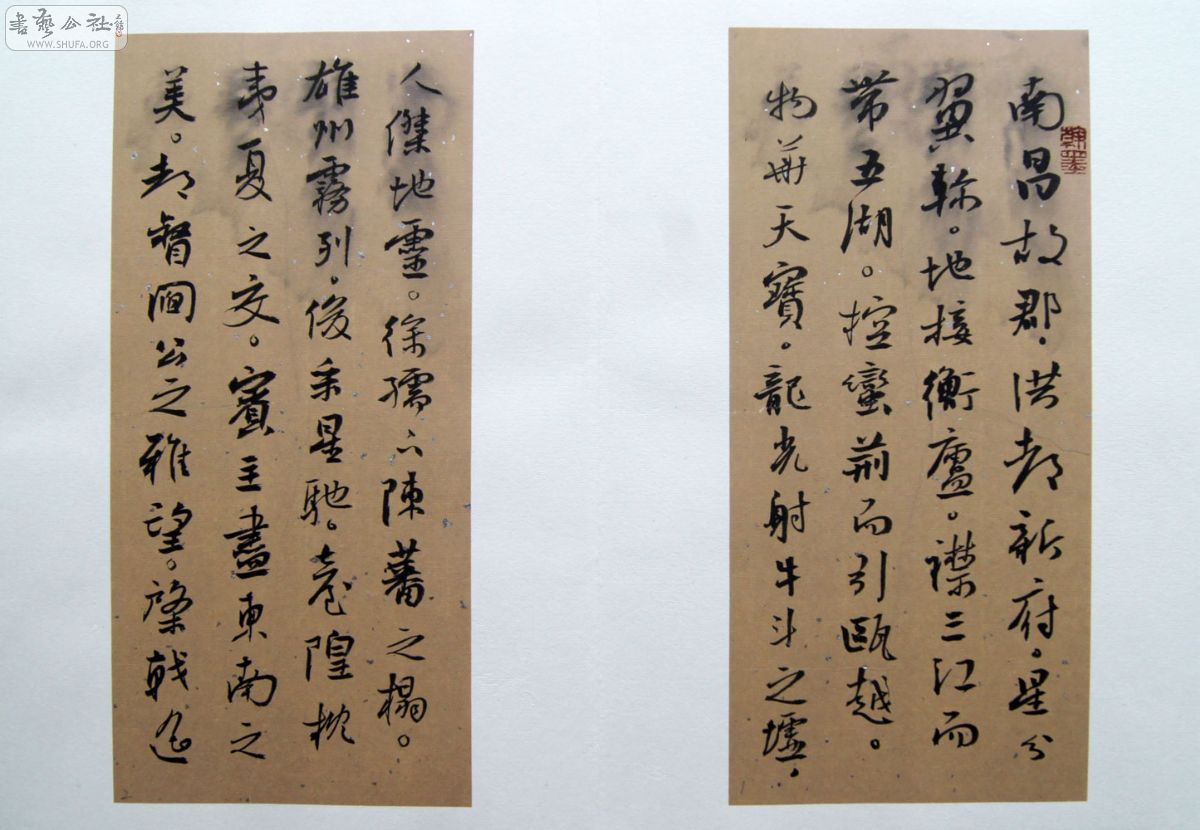 南昌故郡，洪都新府。星分
翼軫。地接衡廬。襟三江而
帶五湖。控蠻荊而引甌越。
物華天寶。龍光射牛斗之墟，
人傑地靈。徐孺下陳蕃之榻。
雄州霧列。俊采星馳。臺隍枕
夷夏之交。賓主盡東南之
美。都督閻公之雅望。棨戟遙
翰墨
書藝公社
WWW.SHUFA.ORG
1
2